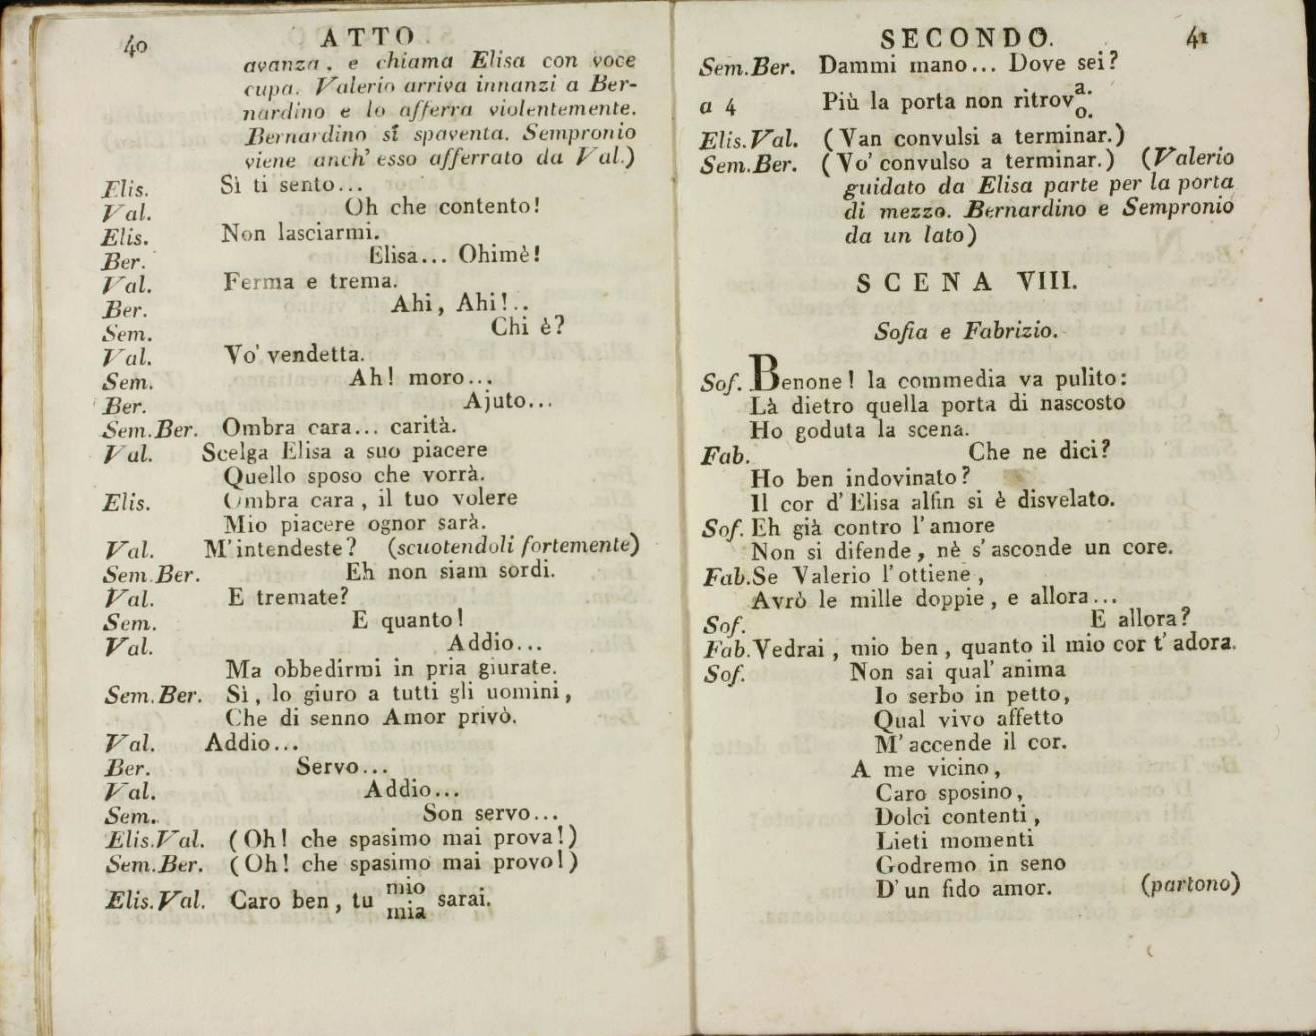 40 ATTO
avanza, e chiama Elisa con voce
cupa. Valerio arriva innanzi a Ber-
nardino e lo afferra violentemente.
Bernardino si spaventa. Sempronio
viene anch' esso afferrato da Val.)
Elis. Sì ti sento...
Val. Oh che contento!
Elis. Non lasciarmi.
Ber. Elisa... Ohimè!
Val. Ferma e trema.
Ber. Ahi, Ahi!..
Sem. Chi è?
Val. Vo' vendetta.
Sem. Ah! moro...
Ber. Ajuto...
Sem.Ber. Ombra cara... carità.
Val. Scelga Elisa a suo piacere
Quello sposo che vorrà.
Elis. Ombra cara, il tuo volere
Mio piacere ognor sarà.
Val. M'intendeste? (scuotendoli fortemente)
Sem.Ber. Eh non siam sordi.
Val. E tremate?
Sem. E quanto!
Val. Addio...
Ma obbedirmi in pria giurate.
Sem.Ber. Sì, lo giuro a tutti gli uomini,
Che di senno Amor privò.
Val. Addio...
Ber. Servo...
Val. Addio...
Sem. Son servo...
Elis.Val. (Oh! che spasimo mai prova!)
Sem.Ber. (Oh! che spasimo mai provo!)
Elis.Val. Caro ben, tu mio sarai.
mia
SECONDO. 41
Sem.Ber. Dammi mano... Dove sei?
a 4 Più la porta non ritrova.
o.
Elis.Val. (Van convulsi a terminar.)
Sem.Ber. (Vo' convulso a terminar.) (Valerio
guidato da Elisa parte per la porta
di mezzo. Bernardino e Sempronio
da un lato)
SCENA VIII.
Sofia e Fabrizio.
Sof. Benone! la commedia va pulito:
Là dietro quella porta di nascosto
Ho goduta la scena.
Fab. Che ne dici?
Ho ben indovinato?
Il cor d'Elisa alfin si è disvelato.
Sof. Eh già contro l'amore
Non si difende, nè s'asconde un core.
Fab. Se Valerio l'ottiene,
Avrò le mille doppie, e allora...
Sof. E allora?
Fab. Vedrai, mio ben, quanto il mio cor t'adora.
Sof. Non sai qual'anima
Io serbo in petto,
Qual vivo affetto
M'accende il cor.
A me vicino,
Caro sposino,
Dolci contenti,
Lieti momenti
Godremo in seno
D'un fido amor. (partono)